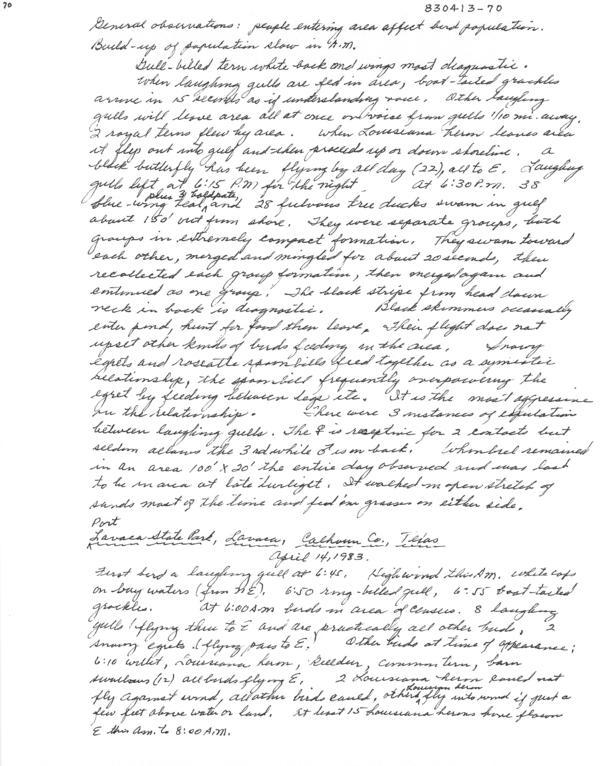 70
830413-70
General observations: people entering area affect bird population.
Build-up of population slow in A.M.
Gull-billed tern white back and wings most diagnostic.
When laughing gulls are fed in area, boat-tailed grackles
arrive in 15 seconds as if understanding voice. Other laughing
gulls will leave area all at once on voice from gulls 1/10 mi. away.
2 royal terns flew by area. When Louisiana heron leaves area
it flys out into gulf and then proceeds up or down shoreline. A
black butterfly has been flying by all day (22), all to E. Laughing
gulls left at 6:15 P.M. for the night. At 6:30 P.M. 38
plus 3 baldpate,
blue-wing teal, and 28 fulvous tree ducks swam in gulf
about 150' out from shore. They were separate groups, both
groups in extremely compact formation. They swam toward
each other, merged and mingled for about 20 seconds, then
recollected each group formation, then merged again and
continued as one group. The black stripe from head down
neck in back is diagnostic. Black skimmers occasionally
enter pond, hunt for food then leave. Their flight does not
upset other kinds of birds feeding in the area. Snowy
egrets and roseatte spoonbills feed together as a symiotic
relationship, the spoonbill frequently overpowering the
egret by feeding between legs etc. It is the most aggressive
in the relationship. There were 3 instances of copulation
between laughing gulls. The ♀ is receptive for 2 contacts but
seldom allows the 3rd while ♂ is on back. Whimbrel remained
in an area 100' X 20' the entire day observed and was last
to be in area at late twilight. It walked in open stretch of
sands most of the time and fed on grasses on either side.
Port
Lavaca State Park, Lavaca, Calhoun Co., Texas
April 14, 1983.
First bird a laughing gull at 6:45. High wind this A.M. white caps
on bay waters (from NE). 6:50 ring-billed gull, 6:55 boat-tailed
grackles. At 6:00 A.M birds in area of census. 8 laughing
gulls (flying thru to E and are practically all other birds, 2
snowy egrets. (flying pass to E. Other birds at time of appearance;
6:10 willet, Louisiana heron, killdeer, common tern, barn
swallows (12) all birds flying E. 2 Louisiana heron could not
fly against wind, all other birds could, others
Louisiana heron
fly into wind if just a
few feet above water or land. At least 15 Louisiana herons have flown
E this A.M. to 8:00 A.M.